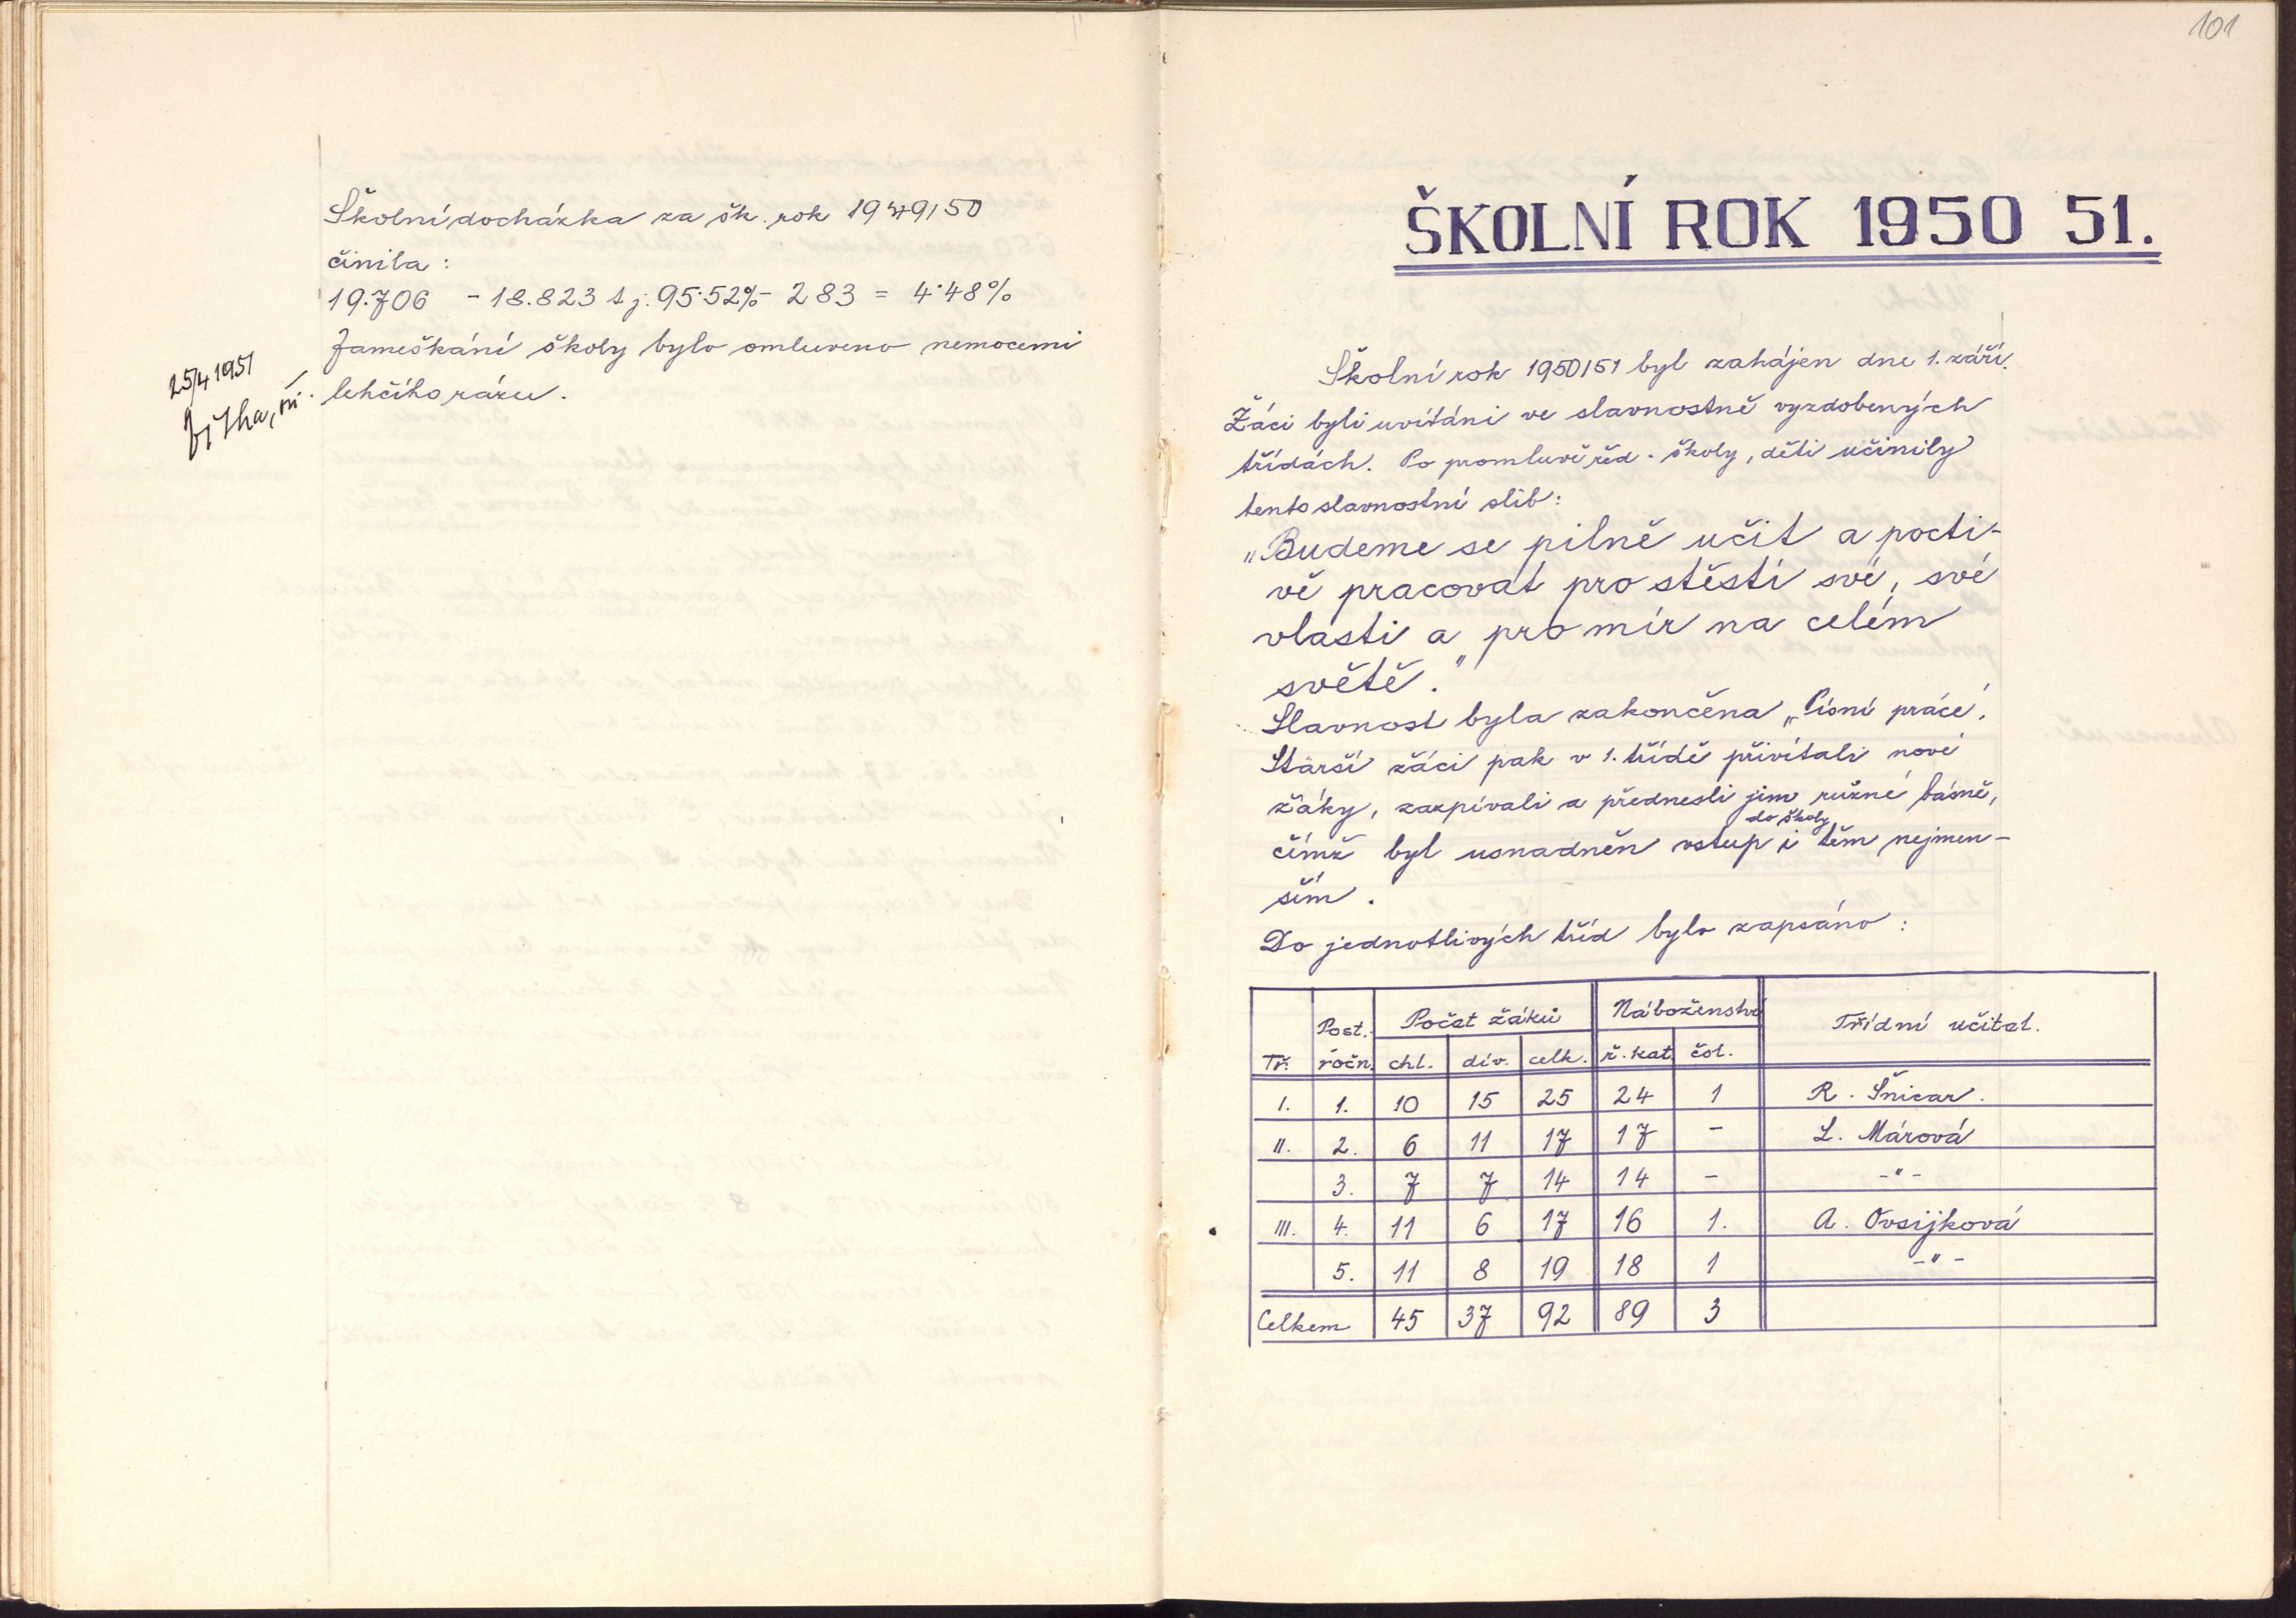 Školní docházka za šk. rok 1949/50
činila:
19.706 - 18.823 t j. 95·52% - 283 = 4·48%
Zameškání školy bylo omluveno nemocemi
lehčího rázu.
25/4 1951
101
ŠKOLNÍ ROK 1950 51.
Školní rok 1950/51 byl zahájen dne 1. září.
Žáci byli uvítáni ve slavnostně vyzdobených
třídách. Po promluvě řed. školy, děti učinily
tento slavnostní slib:
„Budeme se pilně učit a pocti-
vě pracovat pro stěstí své, své
vlasti a pro mír na celém
světě."
Slavnost byla zakončena „Písní práce,
Starší žáci pak v 1. třídě přivítali nové
žáky, zazpívali a přednesli jimružné básně,
do školy
čímž byl usnadněn vstup i těm nejmen-
ším.
Do jednotlivých tříd bylo zapsáno:
Tř. Post. ročn. Počet žáků Náboženství Třídní učitel.
chl. dív. celk. ř. kat. čsl.
I. 1. 10 15 25 24 1 R. Šnicar.
II. 2. 6 11 17 17 - L. Márová
3. 7 7 14 14 - -"-
III. 4. 11 6 17 16 1. A. Ovsijková
5. 11 8 19 18 1 -"-
Celkem 45 37 92 89 3